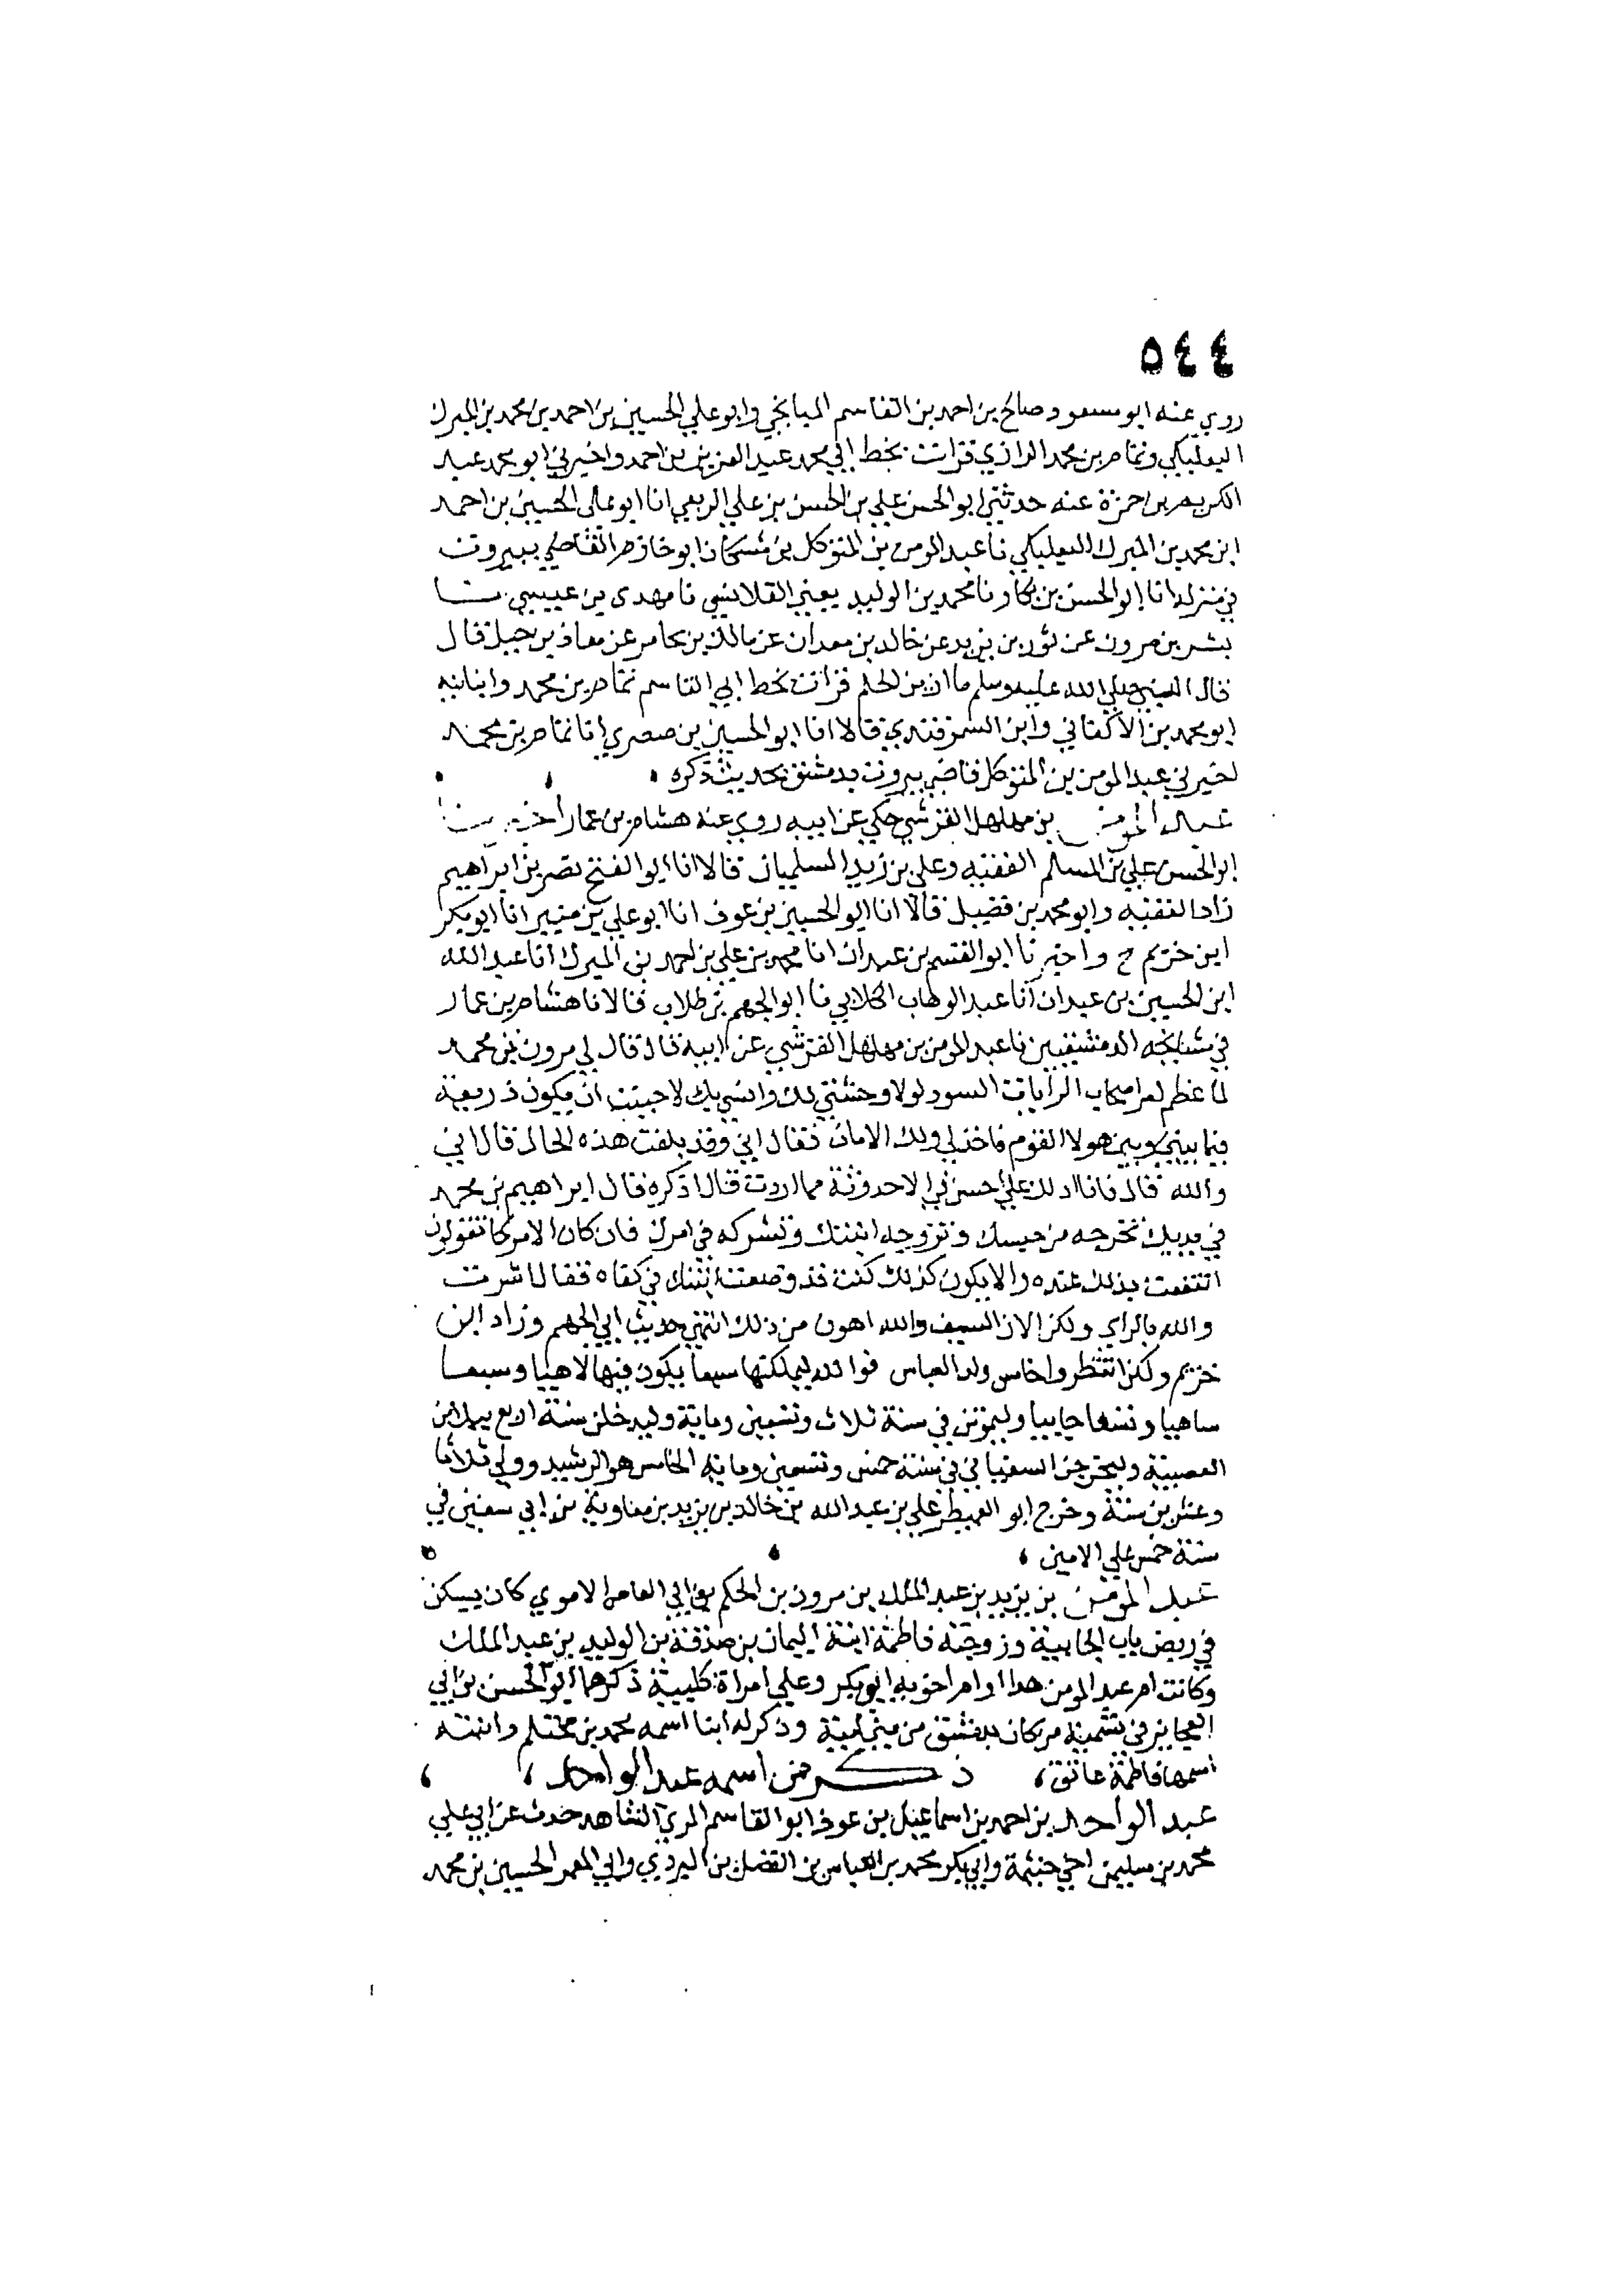 ٥٤٤
روي عنه ابو مسعود صالح بن احمد بن القاسم الميانجي وابو علي الحسين بن احمد بن محمد بن المبرك
البعلبكي وتمام بن محمد الرازي قرات بخط ابي محمد عبد العزيز بن احمد واخبرني ابو محمد عبد
الكريم بن حمزة عنه حدثني ابو الحسن علي بن الحسن بن علي الربعي انا ابو علي الحسين بن احمد
ابن محمد بن المبرك البعلبكي نا عبد المومن بن المتوكل بن مشكان ابو خازم القاضي ببيروت
في منزله انا ابو الحسن بن بكار نا محمد بن الوليد يعني القلانسي نا مهدي بن عيسى نا
بشر بن مرون عن ثور بن يزيد عن خالد بن معدان عن مالك بن يخامر عن معاذ بن جبل قال
قال النبي صلي الله عليه وسلم ما ان بن الحلم قرات بخط ابي القاسم تمام بن محمد وانبانيه
ابو محمد بن الاكفاني وابن السمرقندي قالا انا ابو الحسين بن صصري انا تمام بن محمد
اخبرني عبد المومن بن المتوكل قاضي بيروت بدمشق بحديث ذكره
عبد المومن بن مهلهل القرشي حكي عن ابيه روي عنه هشام بن عمار اخبرنا
ابو الحسن علي بن المسلم الفقيه وعلي بن زيد السلميان قالا انا ابو الفتح نصر بن ابراهيم
زاد الفقيه وابو محمد بن فضيل قالا انا ابو الحسين بن عوف انا ابو علي بن منير انا ابو بكر
ابن خريم ح واخبرنا ابو القسم بن عبدان انا محمد بن علي بن احمد بن المبرك انا عبد الله
ابن الحسين بن عبدان انا عبد الوهاب الكلابي نا ابو الجهم بن طلاب قالا نا هشام بن عمار
في مشايخه الدمشقيين نا عبد المومن بن مهلهل القرشي عن ابيه قال قال لي مرون بن محمد
لما عظم امر اصحاب الرايات السود لولا وحشتي لك وانسي بك لاحببت ان يكون ذريعة
فيما بيني وبين هولا القوم فاخذ لي ولك الامان فقال ابي وقد بلغت هذه الحال قال اني
والله قال فانا ادلك علي احسن الاحدوثة مما اردت قال اذكره قال ابراهيم بن محمد
في يديك تخرجه من حبسك وتزوجه ابنتك وتشركه في امرك فان كان الامر كما تقولون
انتفعت بذلك عنده والا يكون كذلك كنت قد وضعت ابنتك في كفاه فقال اشرت
والله بالراي ولكن الان السيف والله اهون من ذلك انتهي حديث ابي الجهم وزاد ابن
خريم ولكن انتظروا خامس ولد العباس فوالله ليملكنها سبعا يكون فيها لاهيا وسبعا
ساهيا وتسعا جابيا وليموتن في سنة ثلاث وتسعين وماية وليدخلن سنة اربع
العصبية وليخرجن السفياني في سنة خمس وتسعين وماية الخامس هو الرشيد وولي ثلاثا
وعشرين سنة وخرج ابو العميطر علي بن عبد الله بن خالد بن يزيد بن معاوية بن ابي سفين في
سنة خمس علي الامين
عبد المومن بن يزيد بن عبد الملك بن مرون بن الحكم بن ابي العاص الاموي كان يسكن
في ربض باب الجابية وزوجته فاطمة ابنة اليمان بن صدقة بن الوليد بن عبد الملك
وكانت ام عبد المومن هذا وام اخويه ابي بكر وعلي امراة كلبية ذكرهما ابو الحسن بن ابي
العجايز في تسمية من كان بدمشق من بني امية وذكر له ابنا اسمه محمد بن محتلم وابنته
اسمها فاطمة عاتق، ذكر من اسمه عبد الواحد،
عبد الواحد بن احمد بن اسماعيل بن عوف ابو القاسم المري الشاهد حدث عن ابي علي
محمد بن سليمن اخي خيثمة وابي بكر محمد بن العباس بن الفضل بن البردي وابي المعمر الحسين بن محمد